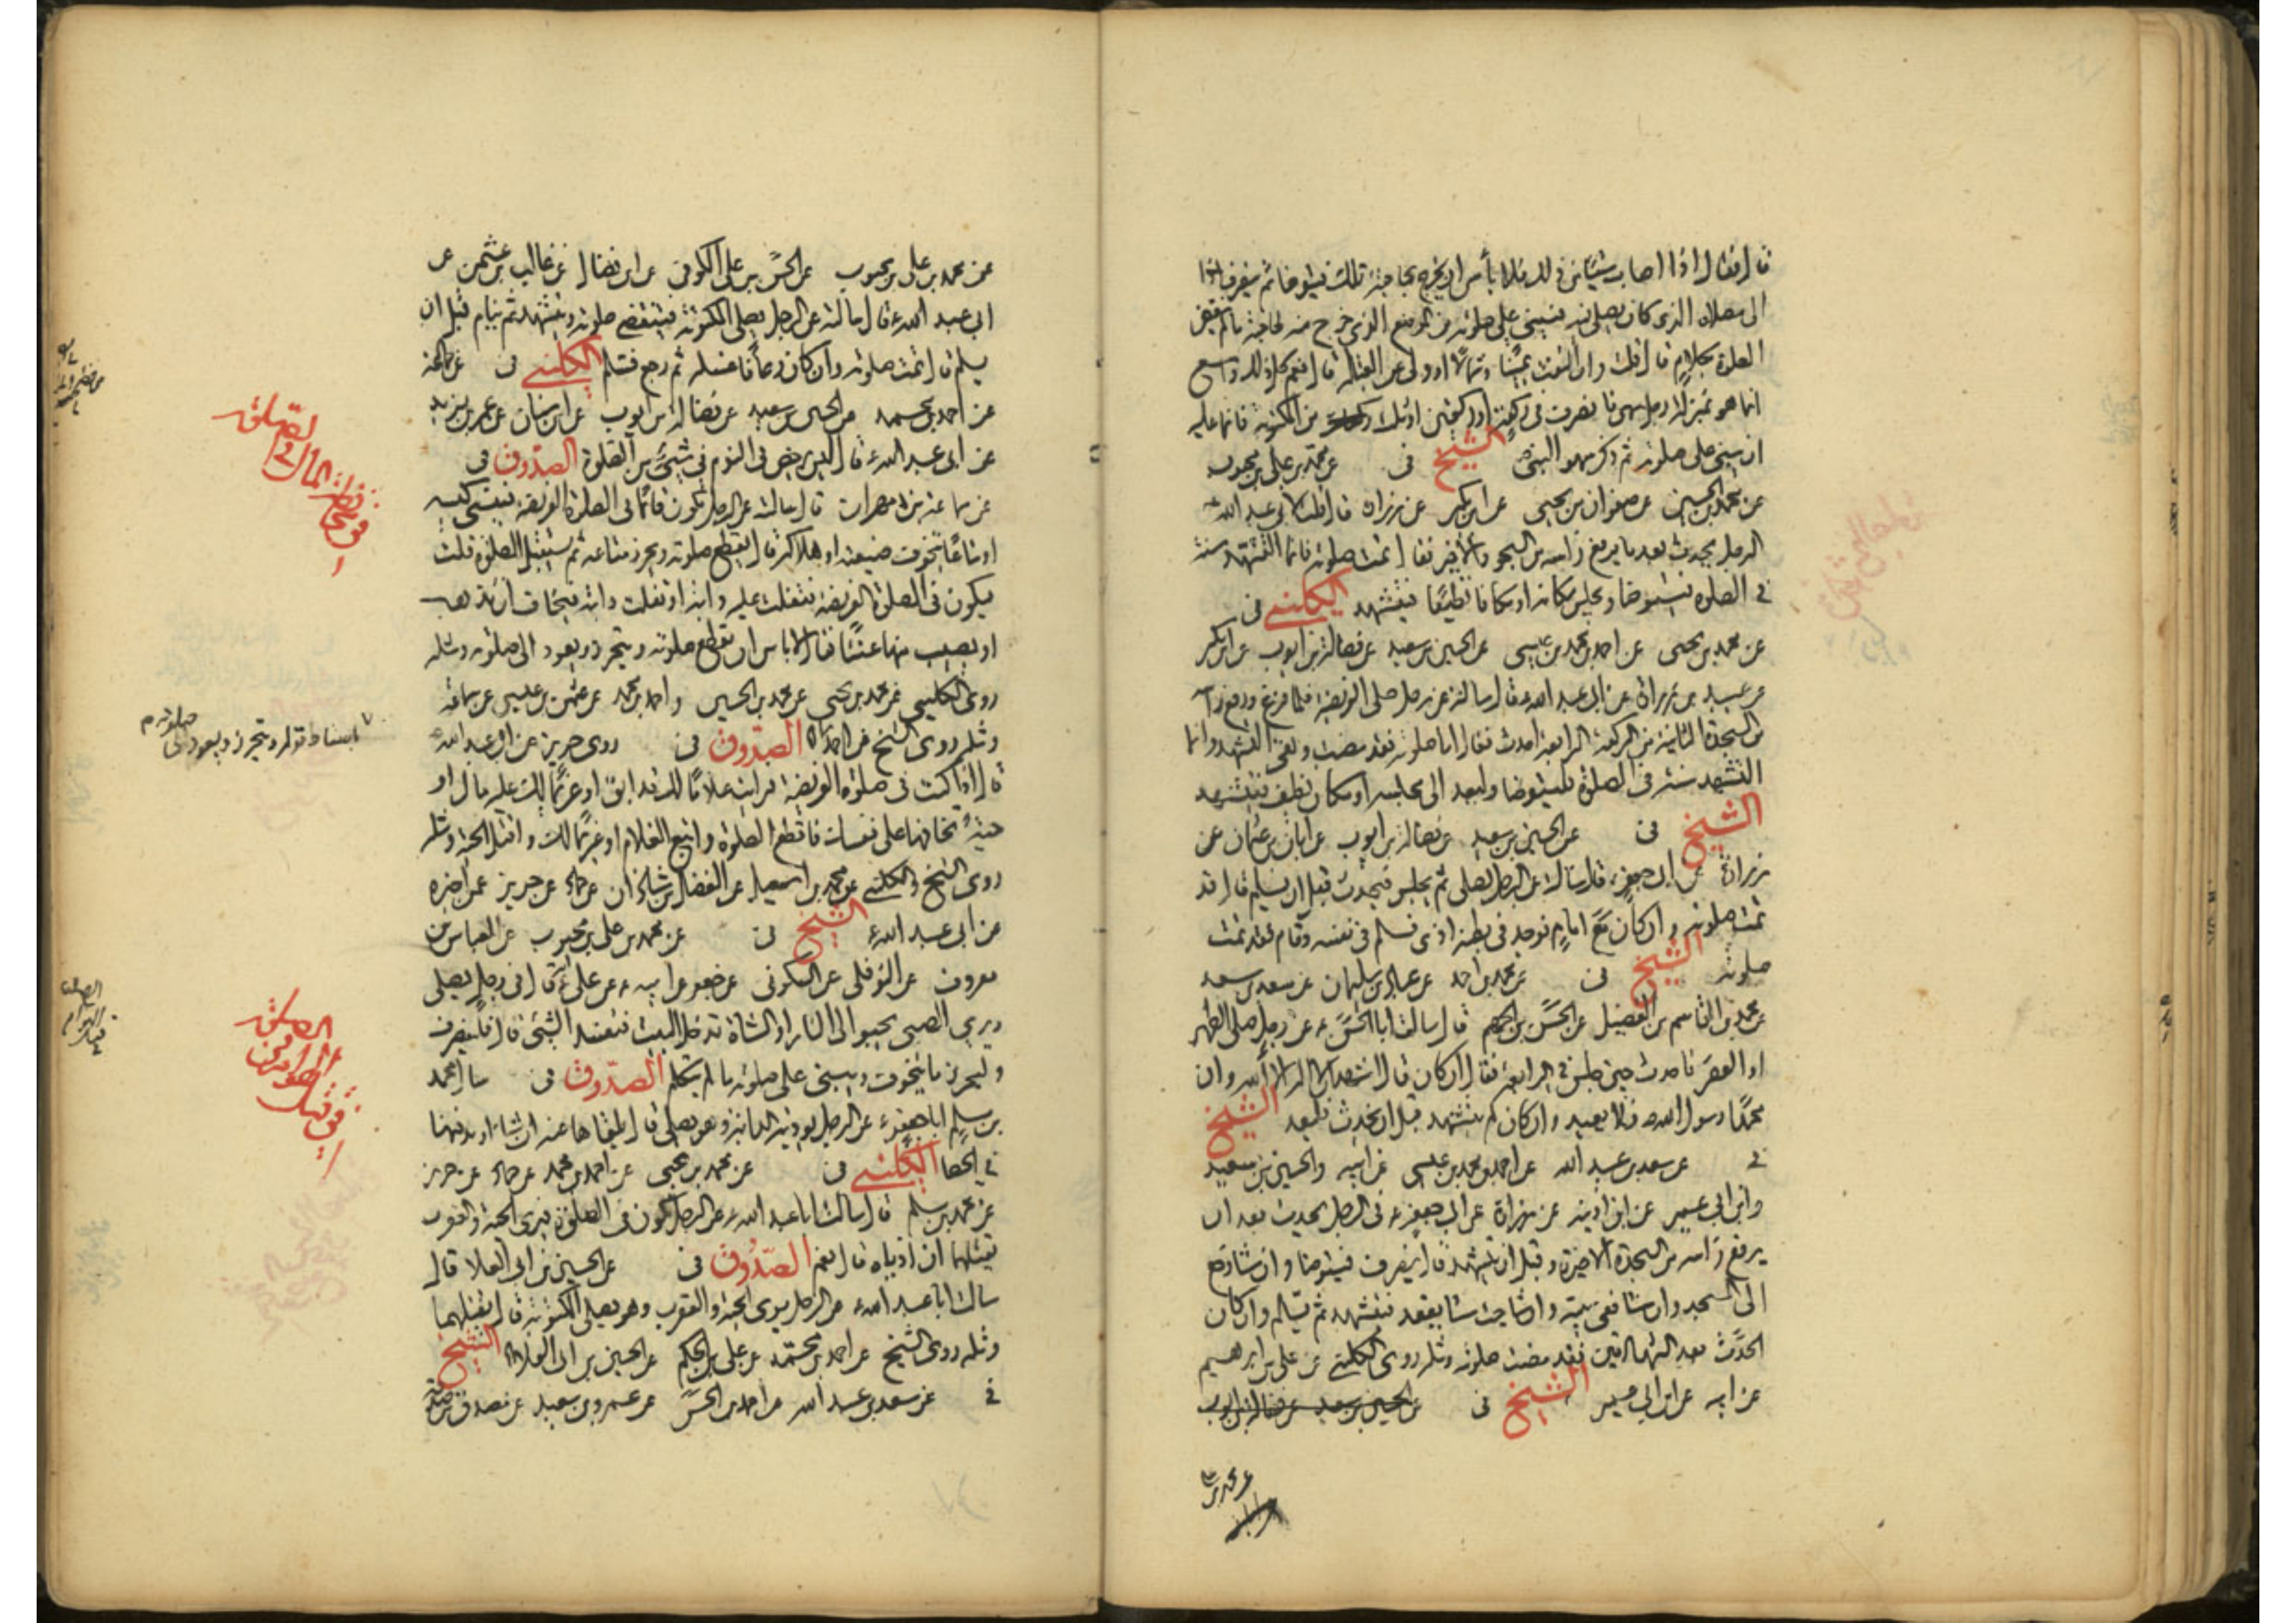 قال فقال اذا اصاب شيئا من ذلك فلا بأس ان يخرج لحاجته تلك فيتوضا ثم ينصرف
الى مصلاه الذى كان يصلى فيه فيبنى على صلوته من الموضع الذى خرج منه لحاجته ما لم ينقض
الصلوة بكلام قال قلت وان التفت يمينا وشمالا او ولى عن القبلة قال نعم كل ذلك واسع
انما هو بمنزلة رجل سها فانصرف فى ركعة او ركعتين او ثلث من المكتوبة فانما عليه
ان يبنى على صلوته ثم ذكر سهو النبى ص الشيخ فى عن محمد بن على بن محبوب
عن محمد بن الحسين عن صفوان بن يحيى عن ابن بكير عن زرارة قال قلت لابى عبد الله ع
الرجل يحدث بعد ما يرفع راسه من السجود الاخير فقال تمت صلوته فانما التشهد سنة
فى الصلوة فيتوضا ويجلس مكانه او مكانا نظيفا فيتشهد الكلينى فى
عن محمد بن يحيى عن احمد بن محمد بن عيسى عن الحسين بن سعيد عن فضالة بن ايوب عن ابن بكير
عن عبيد بن زرارة عن ابى عبد الله ع قال سالته عن رجل صلى الفريضة فلما فرغ ورفع راسه
من السجدة الثانية من الركعة الرابعة احدث فقال اما صلوته فقد مضت وبقى التشهد وانما
التشهد سنة فى الصلوة فليتوضا وليعد الى مجلسه او مكان نظيف فيتشهد
الشيخ فى عن الحسين بن سعيد عن فضالة بن ايوب عن ابان بن عثمان عن
زرارة عن ابى جعفر ع قال سالته عن الرجل يصلى ثم يجلس فيحدث قبل ان يسلم قال قد
تمت صلوته وان كان مع امام فوجد فى بطنه اذى فسلم فى نفسه وقام فقد تمت
صلوته الشيخ فى عن محمد بن احمد عن عباد بن سليمان عن سعد بن سعد
عن محمد بن القاسم بن الفضيل عن الحسن بن الجهم قال سالت ابا الحسن ع عن رجل صلى الظهر
او العصر فاحدث حين جلس فى الرابعة فقال ان كان قال اشهد ان لا اله الا الله وان
محمدا رسول الله ص فلا يعيد وان كان لم يتشهد قبل ان يحدث فليعد الشيخ
فى عن سعد بن عبد الله عن احمد بن محمد بن عيسى عن ابيه والحسين بن سعيد
وابن ابى عمير عن ابن اذينه عن زرارة عن ابى جعفر ع فى الرجل يحدث بعد ان
يرفع راسه من السجدة الاخيرة وقبل ان يتشهد قال ينصرف فيتوضا وان شا رجع
الى المسجد وان شا ففى بيته وان شا حيث شا يقعد فيتشهد ثم يسلم وان كان
الحدث بعد الشهادتين فقد مضت صلوته ومثله روى الكلينى عن على بن ابرهيم
عن ابيه عن ابن ابى عمير الشيخ فى عن الحسين بن سعيد عن فضالة بن ايوب
عن محمد بن على
عن محمد بن على بن محبوب عن الحسن بن على الكوفى عن ابن فضال عن غالب بن عثمن عن
ابى عبد الله ع قال سالته عن الرجل يصلى المكتوبة فينقضى صلوته ويتشهد ثم ينام قبل ان
يسلم قال تمت صلوته وان كان رعافا غسله ثم رجع فسلم الكلينى فى عن جماعة
عن احمد بن محمد عن الحسين بن سعيد عن فضالة بن ايوب عن ابن سنان عن عمر بن يزيد
عن ابى عبد الله ع قال ليس يرخص فى النوم فى شىء من الصلوة الصدوق فى
عن سماعة بن مهران قال سالته عن الرجل يكون قائما فى الصلوة الفريضة فينسى كيسه
او متاعا يتخوف ضيعته او هلاكه قال يقطع صلوته ويحرز متاعه ثم يستقبل الصلوة قلت
فيكون فى الصلوة الفريضة فتفلت عليه دابته او تفلت دابته فيخاف ان تذهب
او يصيب منها عنتا فقال لا باس ان يقطع صلوته ويتحرز ويعود الى صلوته ومثله
روى الكلينى عن محمد بن يحيى عن محمد بن الحسين واحمد بن محمد عن عثمن بن عيسى عن سماعة
ومثله روى الشيخ عن احمد الصدوق فى روى حريز عن ابى عبد الله ع
قال اذا كنت فى صلوة الفريضة فرايت غلاما لك قد ابق او غريما لك عليه مال او
حية تخافها على نفسك فاقطع الصلوة واتبع الغلام او غريما لك واقتل الحية ومثله
روى الشيخ والكلينى عن محمد بن اسمعيل عن الفضل بن شاذان عن حماد عن حريز عمن اخبره
عن ابى عبد الله ع الشيخ فى عن محمد بن على بن محبوب عن العباس بن
معروف عن النوفلى عن السكونى عن جعفر عن ابيه ع عن على ع انه قال فى رجل يصلى
ويرى الصبى يحبو الى النار او الشاة تدخل البيت فتفسد الشئ قال فلينصرف
وليحرز ما يتخوف ويبنى على صلوته ما لم يتكلم الصدوق فى سال محمد
بن مسلم ابا جعفر ع عن الرجل يؤذيه الدابة وهو يصلى قال يلقيها عنه ان شاء او يدفنها
فى الحصا الكلينى فى عن محمد بن يحيى عن احمد بن محمد عن حماد عن حريز
عن محمد بن مسلم قال سالت ابا عبد الله ع عن الرجل يكون فى الصلوة فيرى الحية والعقرب
يقتلهما ان اذياه قال نعم الصدوق فى عن الحسين بن ابى العلا قال
سالت ابا عبد الله ع عن الرجل يرى الحية والعقرب وهو يصلى المكتوبة قال يقتلهما
ومثله روى الشيخ عن احمد بن محمد عن على بن الحكم عن الحسين بن ابى العلا الشيخ
فى عن سعد بن عبد الله عن احمد بن الحسن عن عمرو بن سعيد عن مصدق بن صدقة
باسقاط قوله ويتحرز ويعود الى صلوته